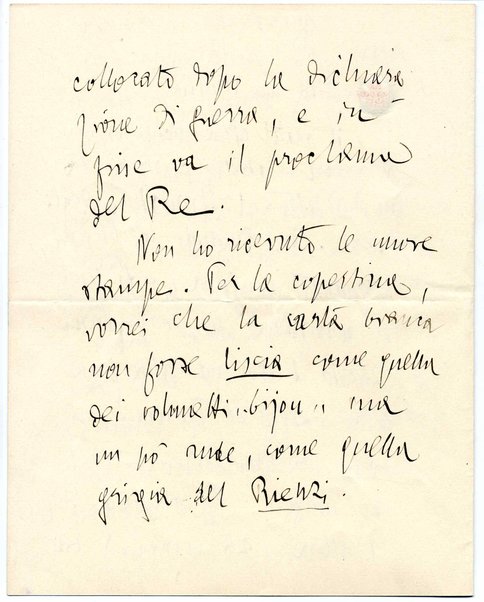 collocato dopo la dichiara
zione di guerra, e in
fine va il proclama
del Re.
Non ho ricevuto le nuove
stampe. Per la copertina,
vorrei che la carta bianca
non fosse liscia come quella
dei volumetti "bijou" ma
un pò rude, come quella
grigia del Rienzi.